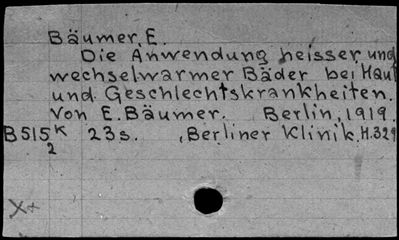 Bäumer, E.
Die Anwendung heisser und
wechselwarmer Bäder bei Haut
und Geschlechtskrankheiten.
Von E. Bäumer. Berlin, 1919.
B515K 23s. (Berliner Klinik, H.329
2
X+